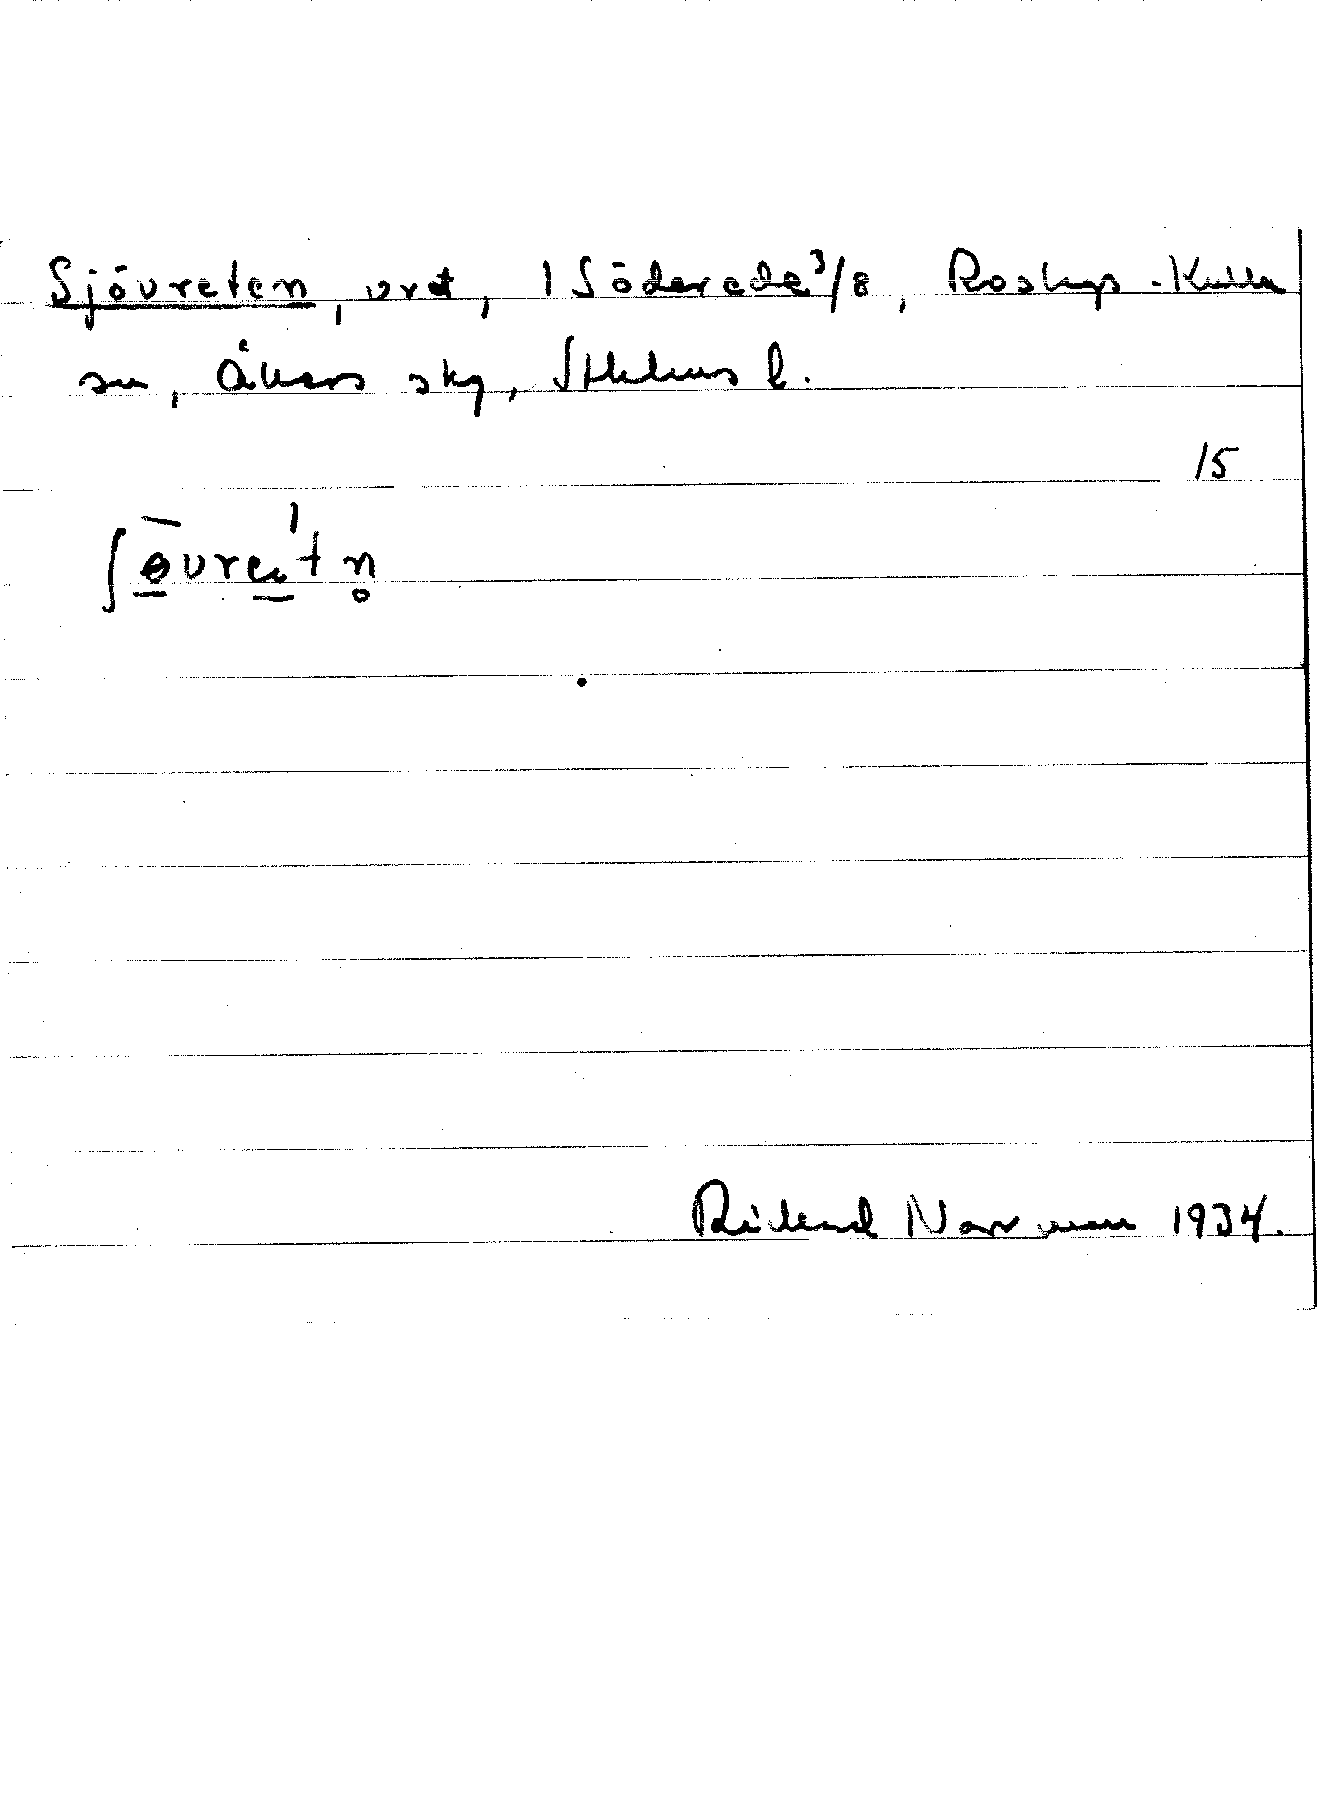 Sjövreten, vret, 1 Söderede 3/8, Roslags-Kulla
sn, Åkers skg, Sthlms l.
15
ʃøvre't n̥
Rickard Norrman 1934.